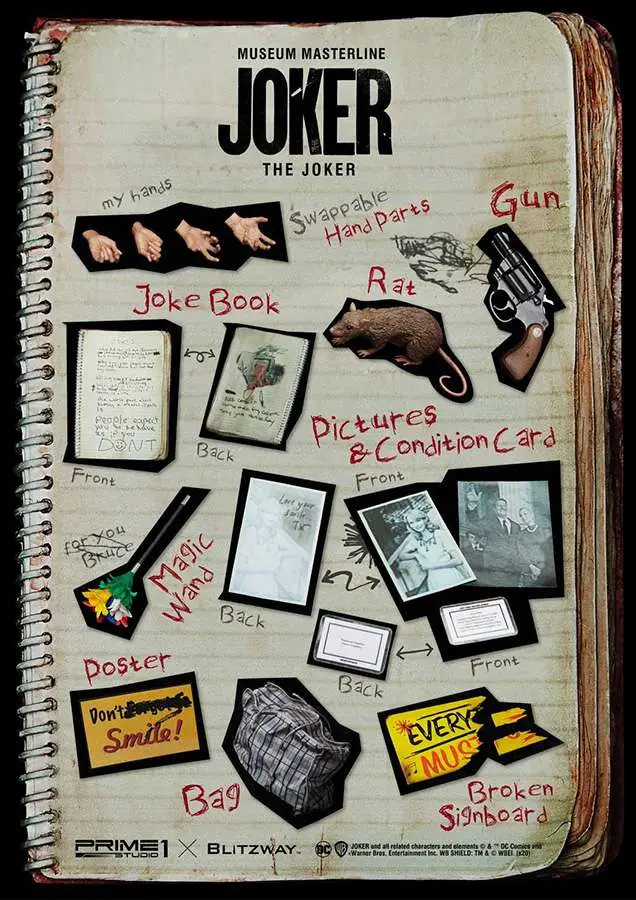 MUSEUM MASTERLINE
JOKER
THE JOKER
my hands
Swappable
Hand Parts
Gun
Joke Book
Rat
People expect
you to behave
as if you
DON'T
Front
Back
Pictures
& Condition Card
Front
for you
Bruce
Magic
Wand
Love your
smile
Back
Back
Front
Poster
Don't Forget to
Smile!
Bag
EVERY
MUS
Broken
Signboard
PRIME 1
STUDIO
X
BLITZWAY™
DC
WB
JOKER and all related characters and elements © & ™ DC Comics and
Warner Bros. Entertainment Inc. WB SHIELD: TM & © WBEI. (s20)